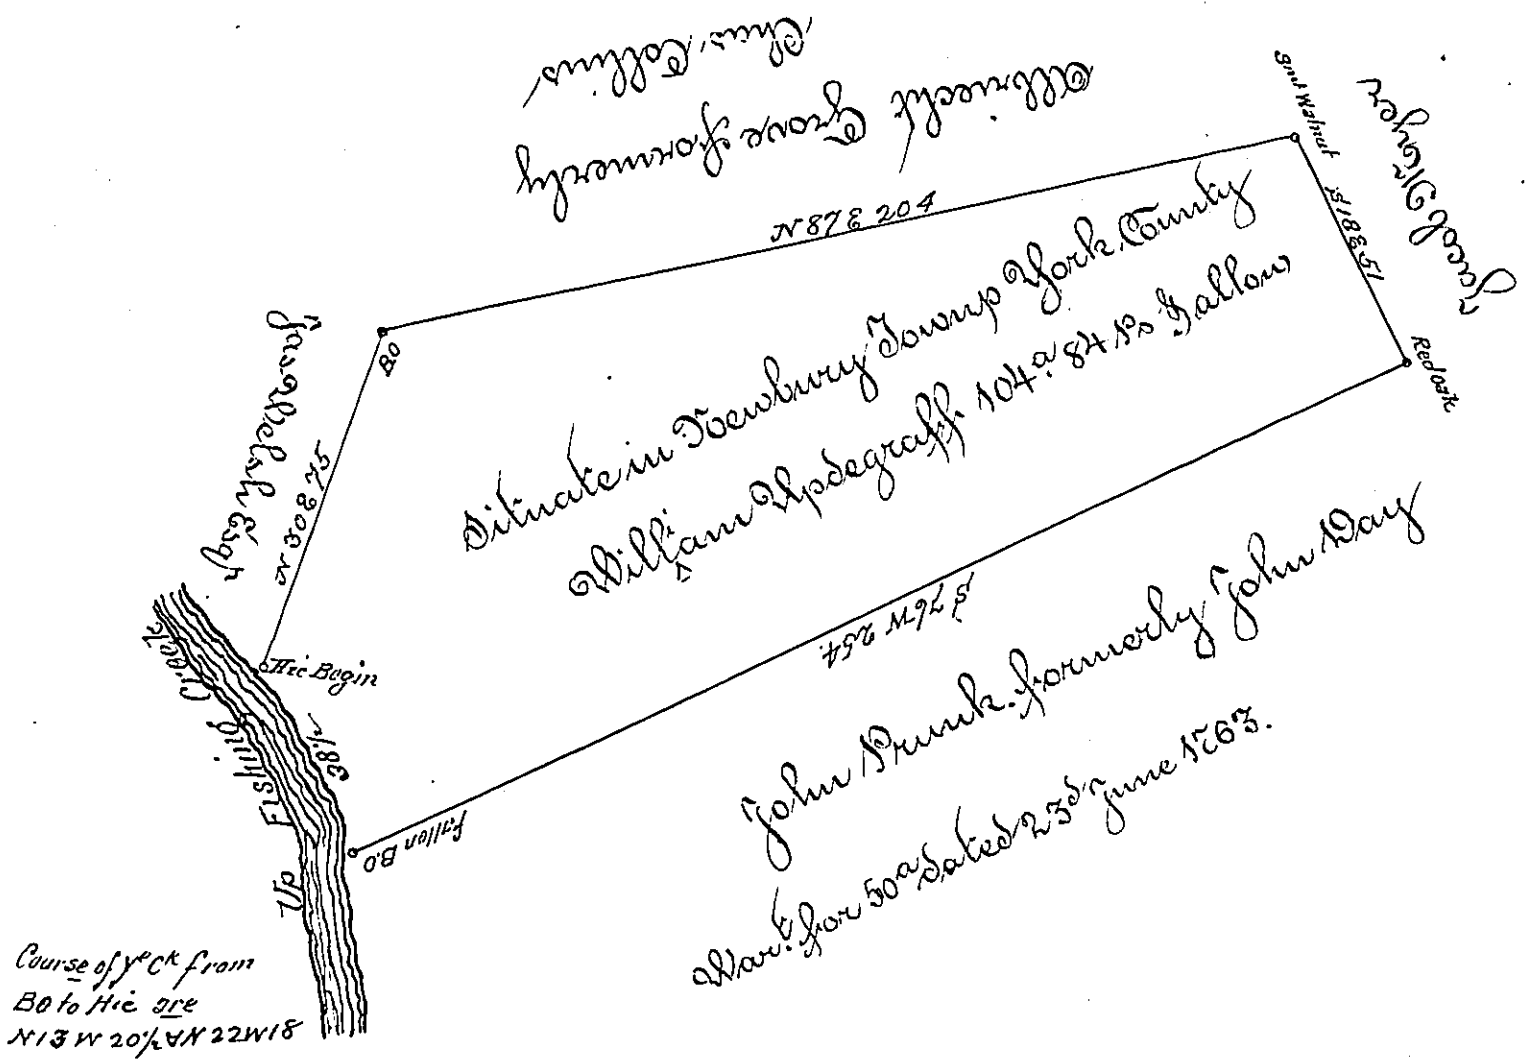 Chris. Collins
Albriecht Grove formerly
Smt Walnut
Jacob Moyer
N 87 E 204
S 18 E 51
Red oak
BO
Jas. Welsh Esqr
N 30 E 75
Situate in Newbury Townp York County
Will^iam Updegraff 104a. 84 Ps & allow
Hic Begin
Up Fishing Creek
38½
S 76 W 254.
fallen B.O
John Prunk. formerly John Day
Wart. for 50a dated 23d June 1763.
Course of ye Ck from
BO to Hic are
N13 W 20½ & N 22 W 18